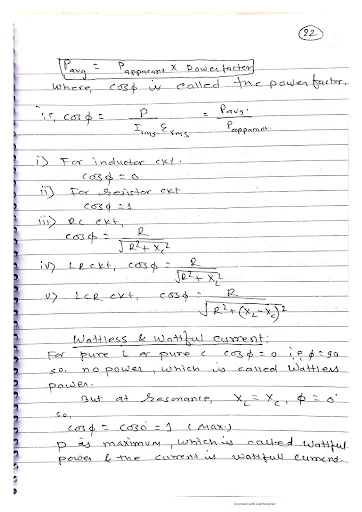 92
Pavg = Papparant x Powerfactor
Where, cosϕ is called the power factor.
i.e, cosϕ = P / Irms Erms = Pavg. / Papparant.
i) For inductor ckt.
cosϕ = 0
ii) For resistor ckt
cosϕ = 1
iii) RC ckt,
cosϕ = R / √R² + Xc²
iv) LR ckt, cosϕ = R / √R² + XL²
v) LCR ckt, cosϕ = R / √R² + (XL - Xc)²
Wattless & Wattful current:
For pure L or pure C cosϕ = 0 i.e ϕ = 90
so, no power, which is called Wattless
power.
But at resonance, XL = Xc, ϕ = 0°
so,
cosϕ = cos0° = 1 (Max.)
P is maximum, which is called wattful
power & the current is wattfull current.
Scanned with CamScanner